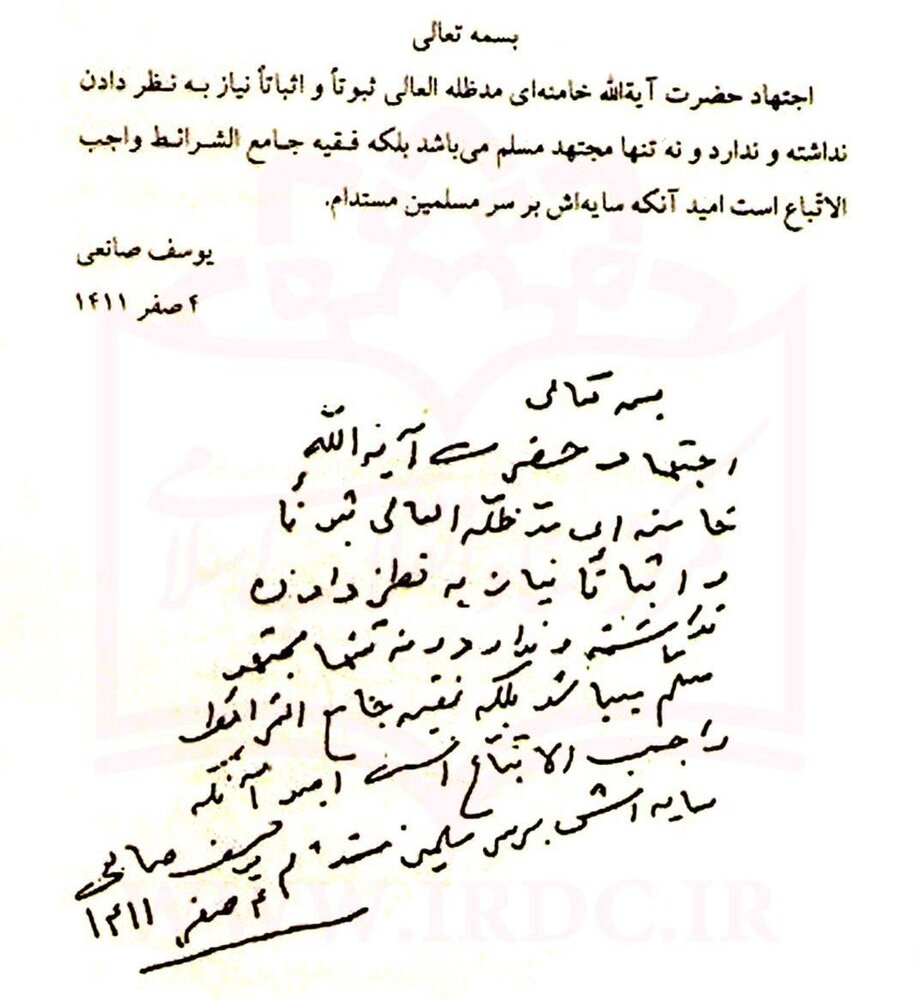 بسمه تعالی
اجتهاد حضرت آیةالله خامنه‌ای مدظله العالی ثبوتاً و اثباتاً نیاز به نظر دادن
نداشته و ندارد و نه تنها مجتهد مسلم می‌باشد بلکه فقیه جامع الشرائط واجب
الاتّباع است امید آنکه سایه‌اش بر سر مسلمین مستدام.
یوسف صانعی
۴ صفر ۱۴۱۱
بسمه تعالی
اجتهاد حضرت آیة الله
خامنه ای مدّ ظلّه العالی ثبوتاً
و اثباتاً نیاز به نظر دادن
نداشته و ندارد و نه تنها مجتهد
مسلم میباشد بلکه فقیه جامع الشرائط
واجب الاتّباع است امید آنکه
سایه اش بر سر مسلمین مستدام یوسف صانعی
۴ صفر ۱۴۱۱
WWW.IRDC.IR